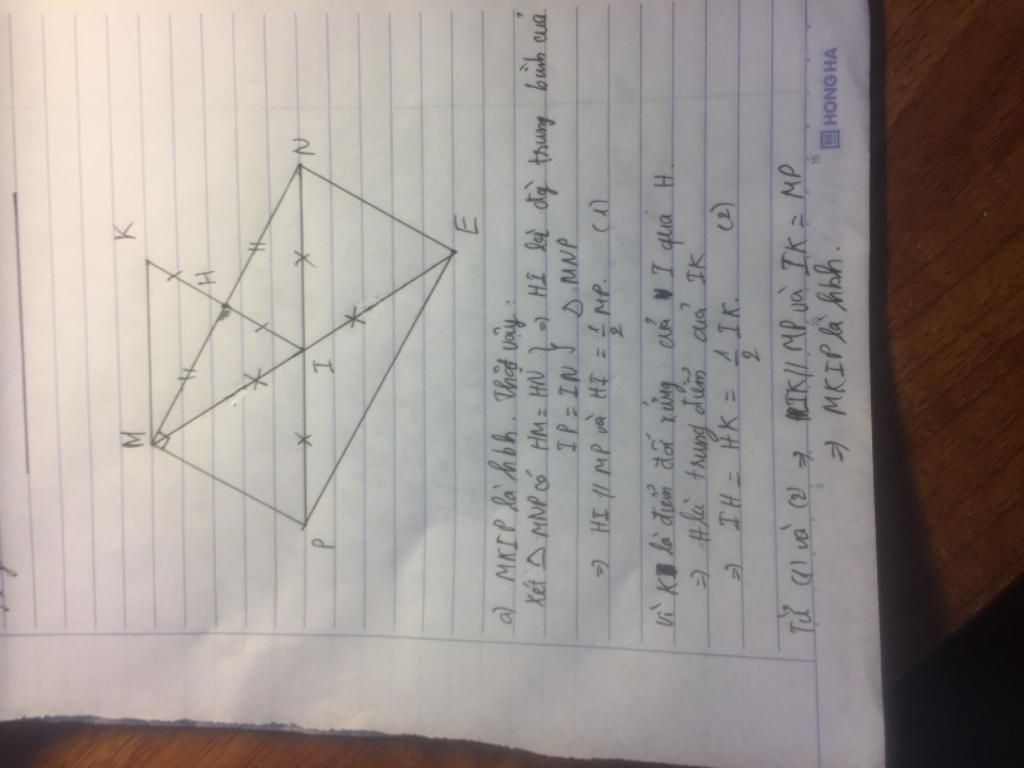 M
K
H
N
P
I
E
a) MKIP là hbh. Thật vậy:
Xét △ MNP có HM = HN } => HI là đg trung bình của
IP = IN △ MNP
=> HI // MP và HI = 1/2 MP. (1)
Vì K là điểm đối xứng của I qua H.
=> H là trung điểm của IK
=> IH = HK = 1/2 IK. (2)
Từ (1) và (2) => IK // MP và IK = MP
=> MKIP là hbh.
5
15
HONG HA